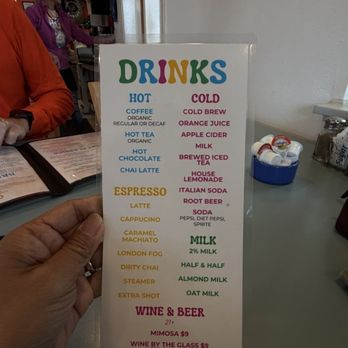 DRINKS
HOT
COFFEE
ORGANIC
REGULAR OR DECAF
HOT TEA
ORGANIC
HOT
CHOCOLATE
CHAI LATTE
ESPRESSO
LATTE
CAPPUCINO
CARAMEL
MACHIATO
LONDON FOG
DIRTY CHAI
STEAMER
EXTRA SHOT
COLD
COLD BREW
ORANGE JUICE
APPLE CIDER
MILK
BREWED ICED
TEA
HOUSE
LEMONADE
ITALIAN SODA
ROOT BEER
SODA
PEPSI, DIET PEPSI,
SPRITE
MILK
2% MILK
HALF & HALF
ALMOND MILK
OAT MILK
WINE & BEER
21+
MIMOSA $9
WINE BY THE GLASS $9